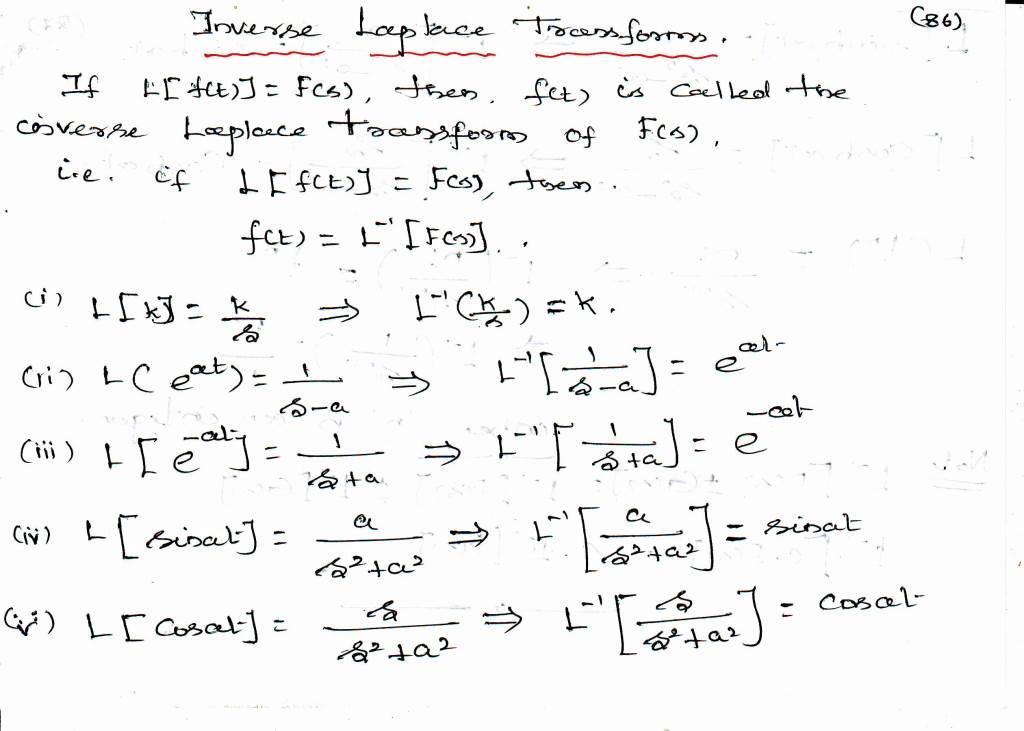 Inverse Laplace Transforms.
(86)
If L[f(t)] = F(s), then, f(t) is called the
inverse Laplace transform of F(s),
i.e. if L[f(t)] = F(s), then.
f(t) = L⁻¹[F(s)].
(i) L[k] = k/s ⇒ L⁻¹(k/s) = k.
(ii) L(e^{at}) = 1/(s-a) ⇒ L⁻¹[1/(s-a)] = e^{at}
(iii) L[e^{-at}] = 1/(s+a) ⇒ L⁻¹[1/(s+a)] = e^{-at}
(iv) L[sinat] = a/(s²+a²) ⇒ L⁻¹[a/(s²+a²)] = sinat
(v) L[cosat] = s/(s²+a²) ⇒ L⁻¹[s/(s²+a²)] = cosat